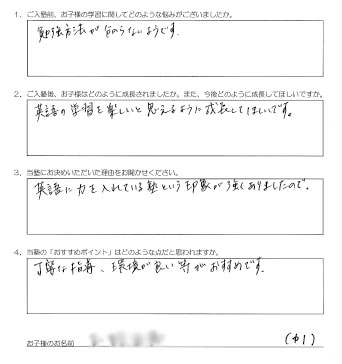 1. ご入塾前、お子様の学習に関してどのような悩みがございましたか。
勉強方法が分からないようです。
2. ご入塾後、お子様はどのように成長されましたか。また、今後どのように成長してほしいですか。
英語の学習を楽しいと思えるように成長してほしいです。
3. 当塾にお決めいただいた理由をお聞かせください。
英語に力を入れている塾という印象が強くありましたので。
4. 当塾の「おすすめポイント」はどのような点だと思われますか。
丁寧な指導、環境が良い等がおすすめです。
お子様のお名前
(中1)